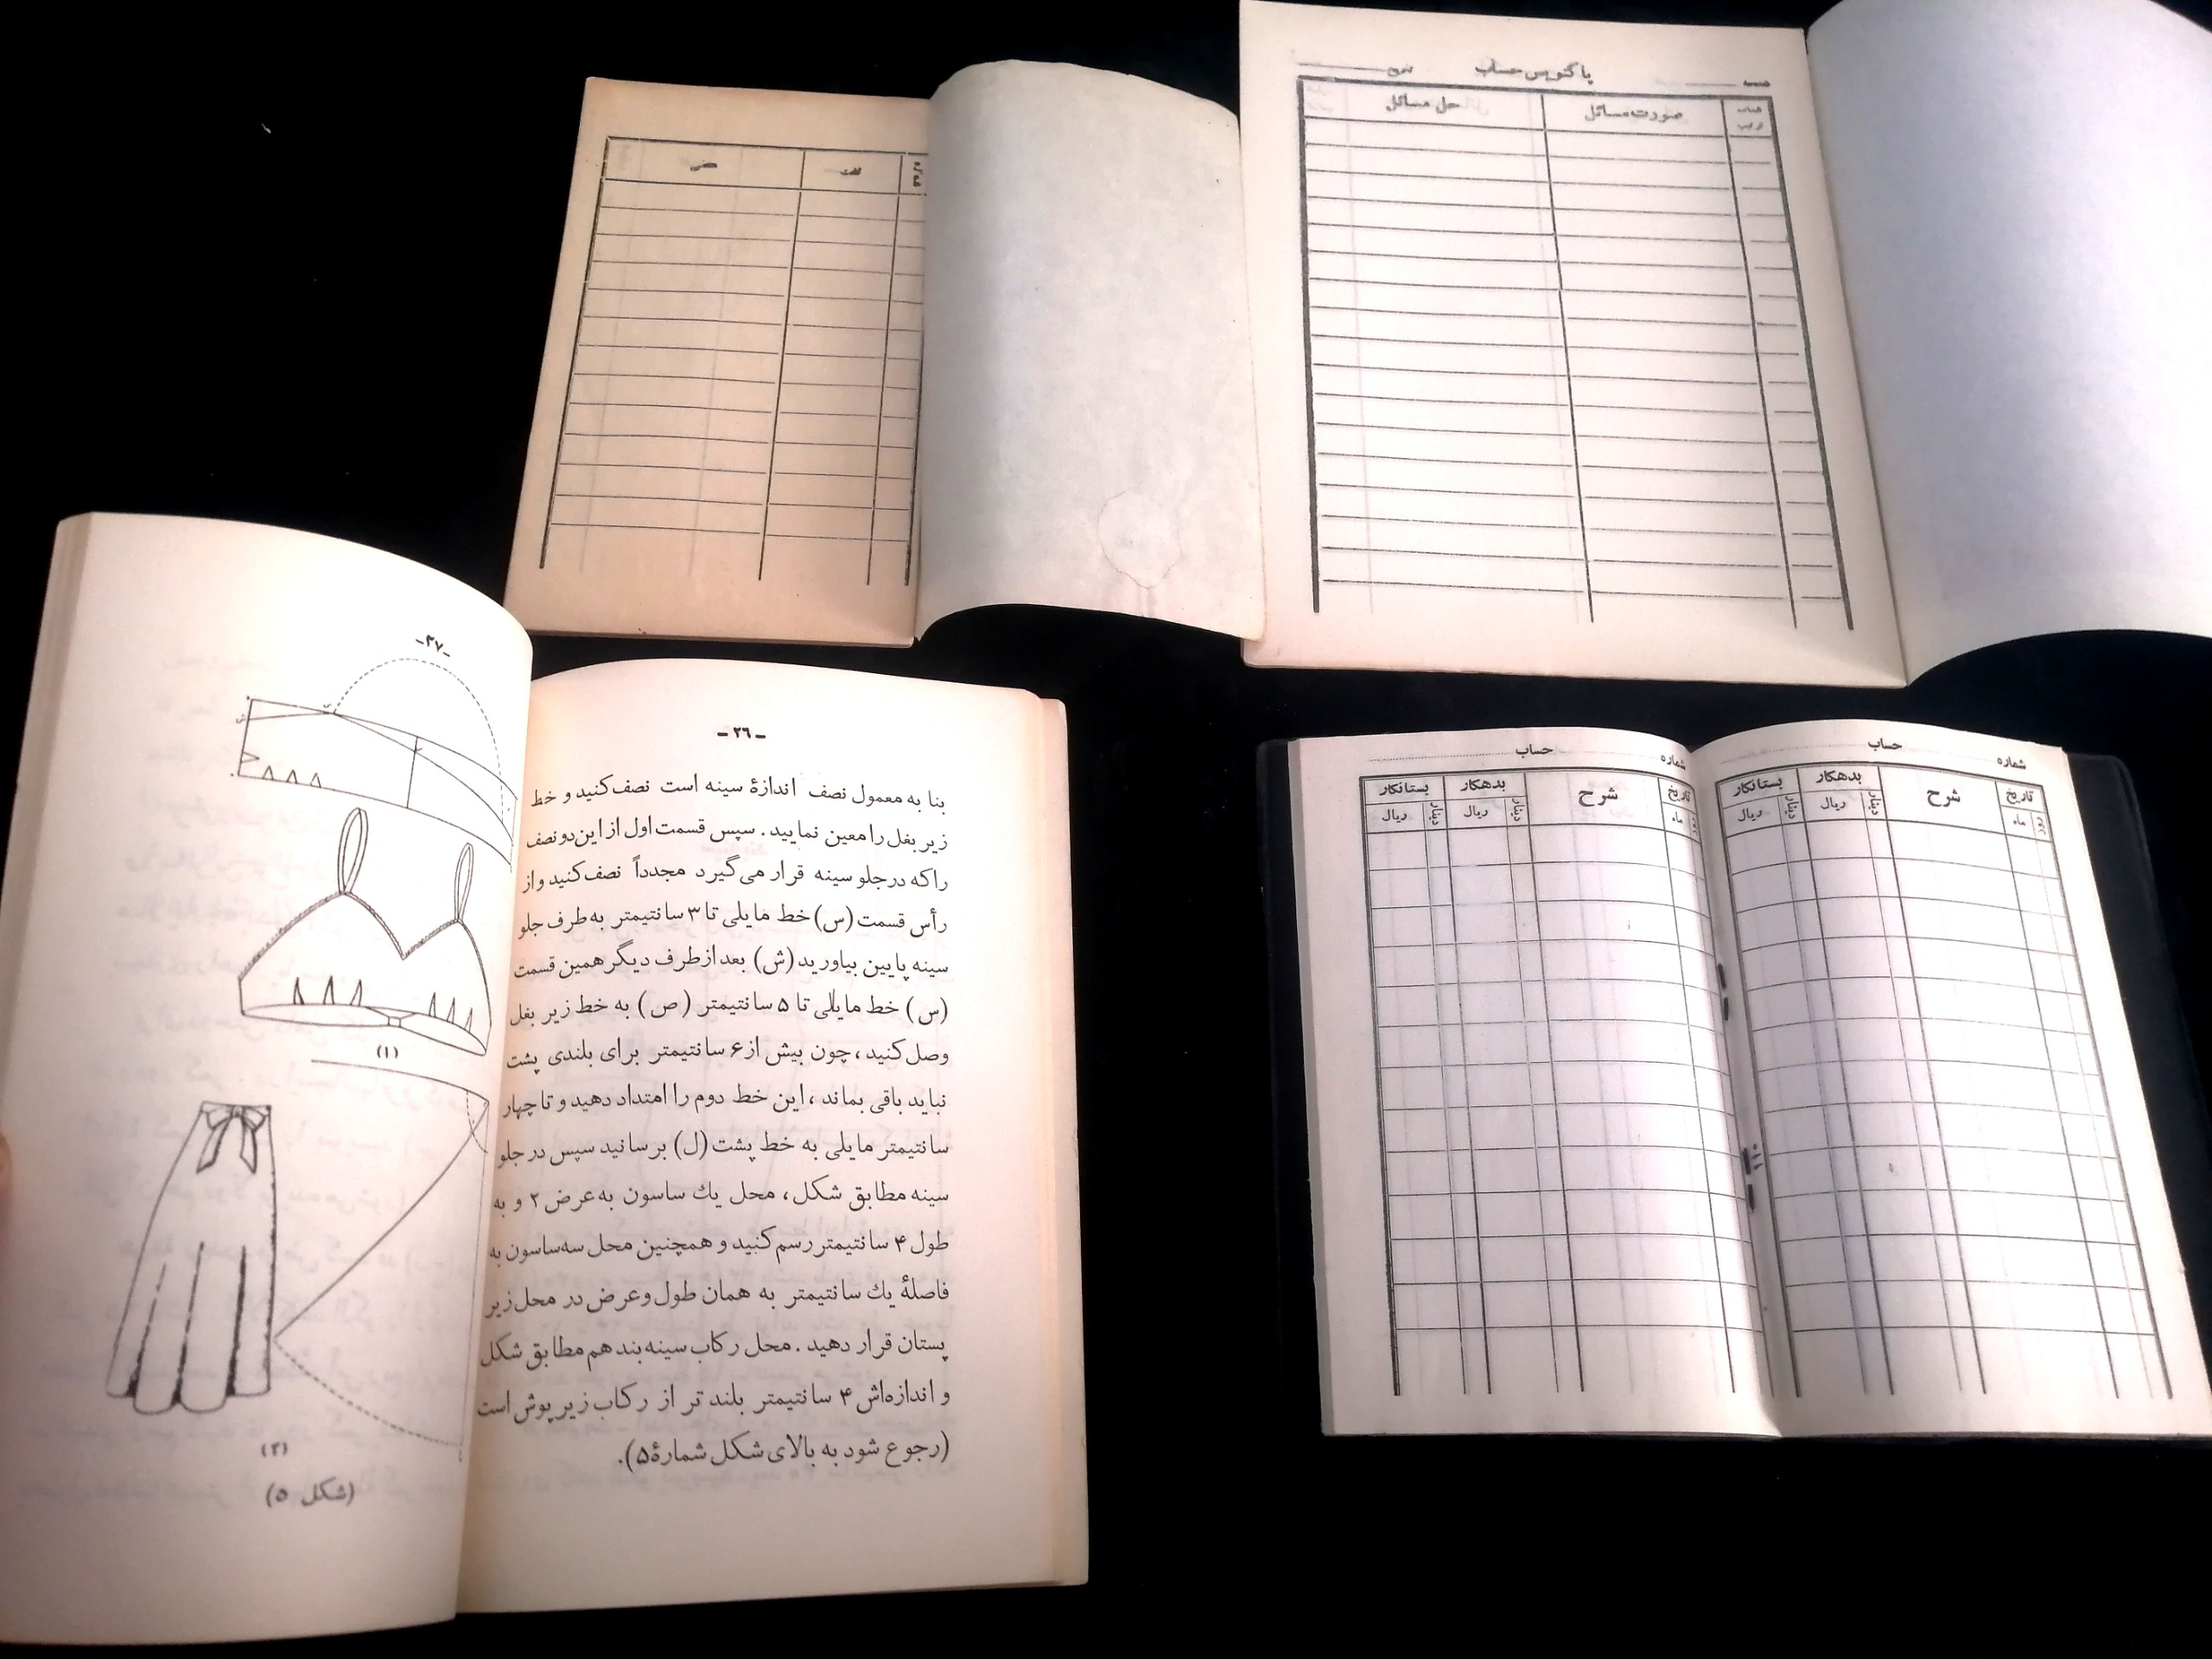 پاکنویس حساب
نمره
صورت مسائل
حل مسائل
شماره
لغت
معنی
-۲۶-
بنا به معمول نصف اندازهٔ سینه است نصف کنید و خط
زیر بغل را معین نمایید. سپس قسمت اول از این دو نصف
را که در جلو سینه قرار می‌گیرد مجدداً نصف کنید و از
رأس قسمت (س) خط مایلی تا ۳ سانتیمتر به طرف جلو
سینه پایین بیاورید (ش) بعد از طرف دیگر همین قسمت
(س) خط مایلی تا ۵ سانتیمتر (ص) به خط زیر بغل
وصل کنید، چون بیش از ۶ سانتیمتر برای بلندی پشت
نباید باقی بماند، این خط دوم را امتداد دهید و تا چهار
سانتیمتر مایلی به خط پشت (ل) برسانید سپس در جلو
سینه مطابق شکل، محل یك ساسون به عرض ۲ و به
طول ۴ سانتیمتر رسم کنید و همچنین محل سه ساسون به
فاصلهٔ یك سانتیمتر به همان طول و عرض در محل زیر
پستان قرار دهید. محل رکاب سینه‌بند هم مطابق شکل
و اندازه‌اش ۴ سانتیمتر بلند تر از رکاب زیرپوش است
(رجوع شود به بالای شکل شمارهٔ ۵).
-۲۷-
(۱)
(۲)
(شکل ۵)
شماره حساب
تاریخ شرح بدهکار بستانکار
روز ماه دینار ریال دینار ریال
شماره حساب
تاریخ شرح بدهکار بستانکار
ماه دینار ریال دینار ریال